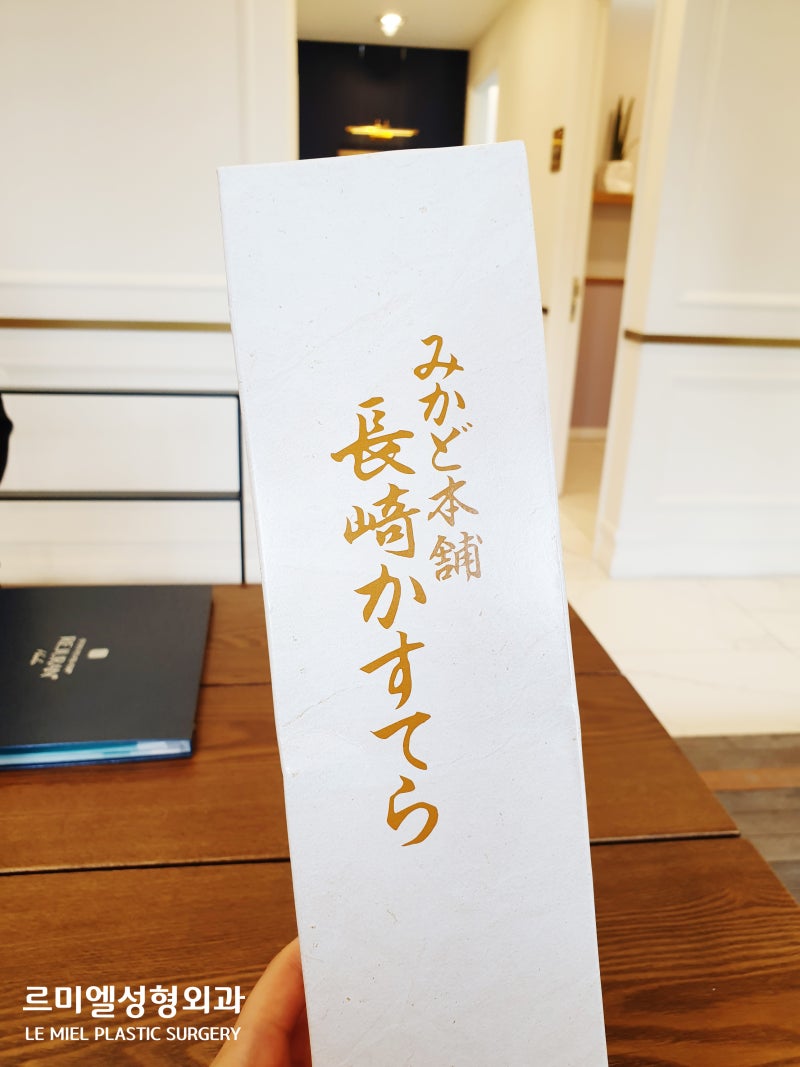 みかど本舗
長崎かすてら
REJURAN
르미엘성형외과
LE MIEL PLASTIC SURGERY